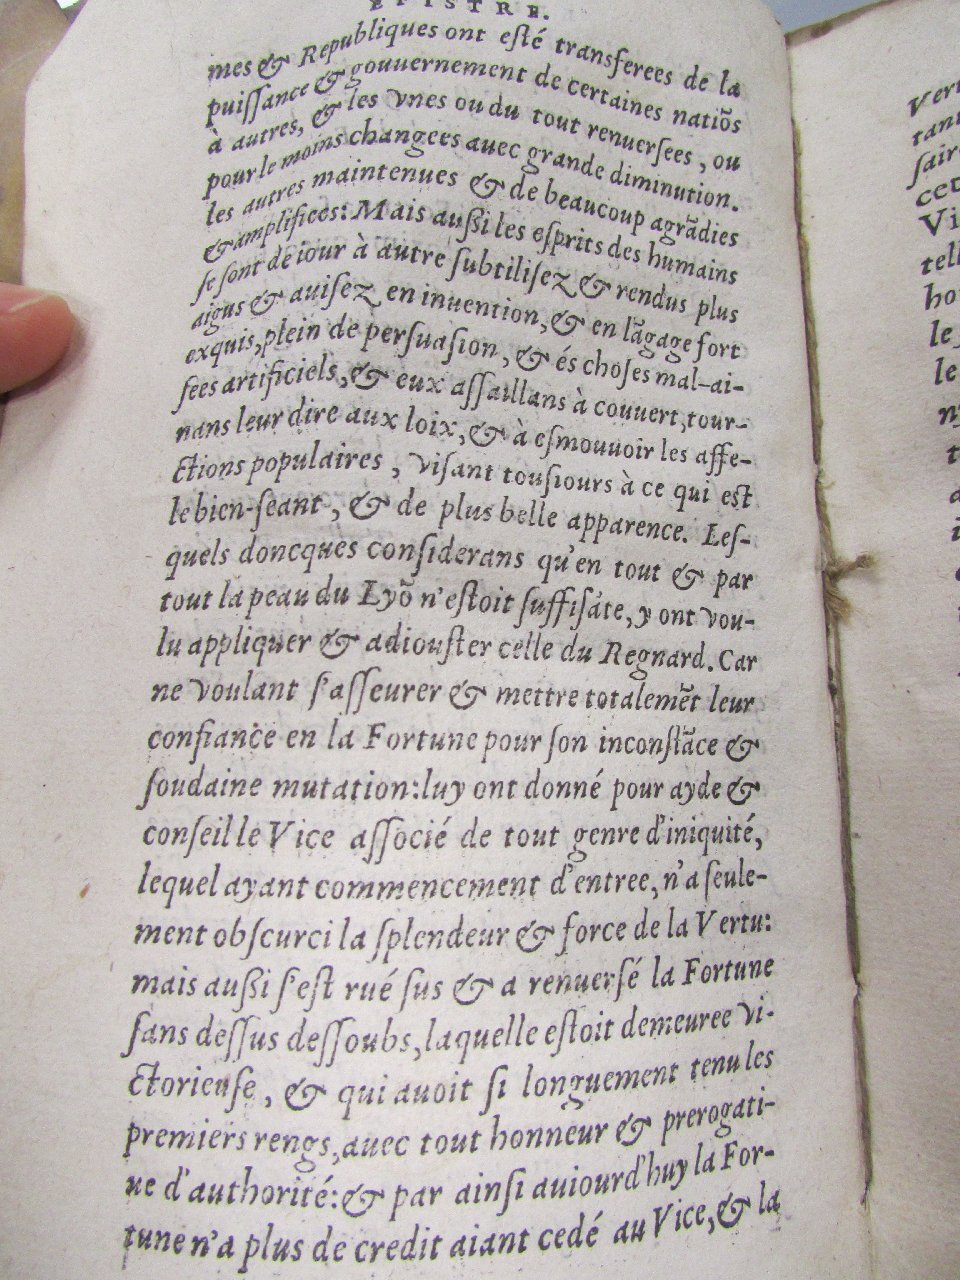 EPISTRE.
mes & Republiques ont esté transferees de la
puissance & gouuernement de certaines natiõs
à autres, & les vnes ou du tout renuersees, ou
pour le moins changees auec grande diminution.
les autres maintenues & de beaucoup agrãdies
& amplifiees: Mais aussi les esprits des humains
se sont de iour à autre subtilisez & rendus plus
aigus & auisez en inuention, & en lãgage fort
exquis, plein de persuasion, & és choses mal-ai-
sees artificiels, & eux assaillans à couuert, tour-
nans leur dire aux loix, & à esmouuoir les affe-
ctions populaires, visant tousiours à ce qui est
le bien-seant, & de plus belle apparence. Les-
quels doncques considerans qu'en tout & par
tout la peau du Lyõ n'estoit suffisãte, y ont vou-
lu appliquer & adiouster celle du Regnard. Car
ne voulant s'asseurer & mettre totalemẽt leur
confiance en la Fortune pour son inconstãce &
soudaine mutation: luy ont donné pour ayde &
conseil le Vice associé de tout genre d'iniquité,
lequel ayant commencement d'entree, n'a seule-
ment obscurci la splendeur & force de la Vertu:
mais aussi s'est rué sus & a renuersé la Fortune
sans dessus dessoubs, laquelle estoit demeuree vi-
ctorieuse, & qui auoit si longuement tenu les
premiers rengs, auec tout honneur & prerogati-
ue d'authorité: & par ainsi auiourd'huy la For-
tune n'a plus de credit aiant cedé au Vice, & la